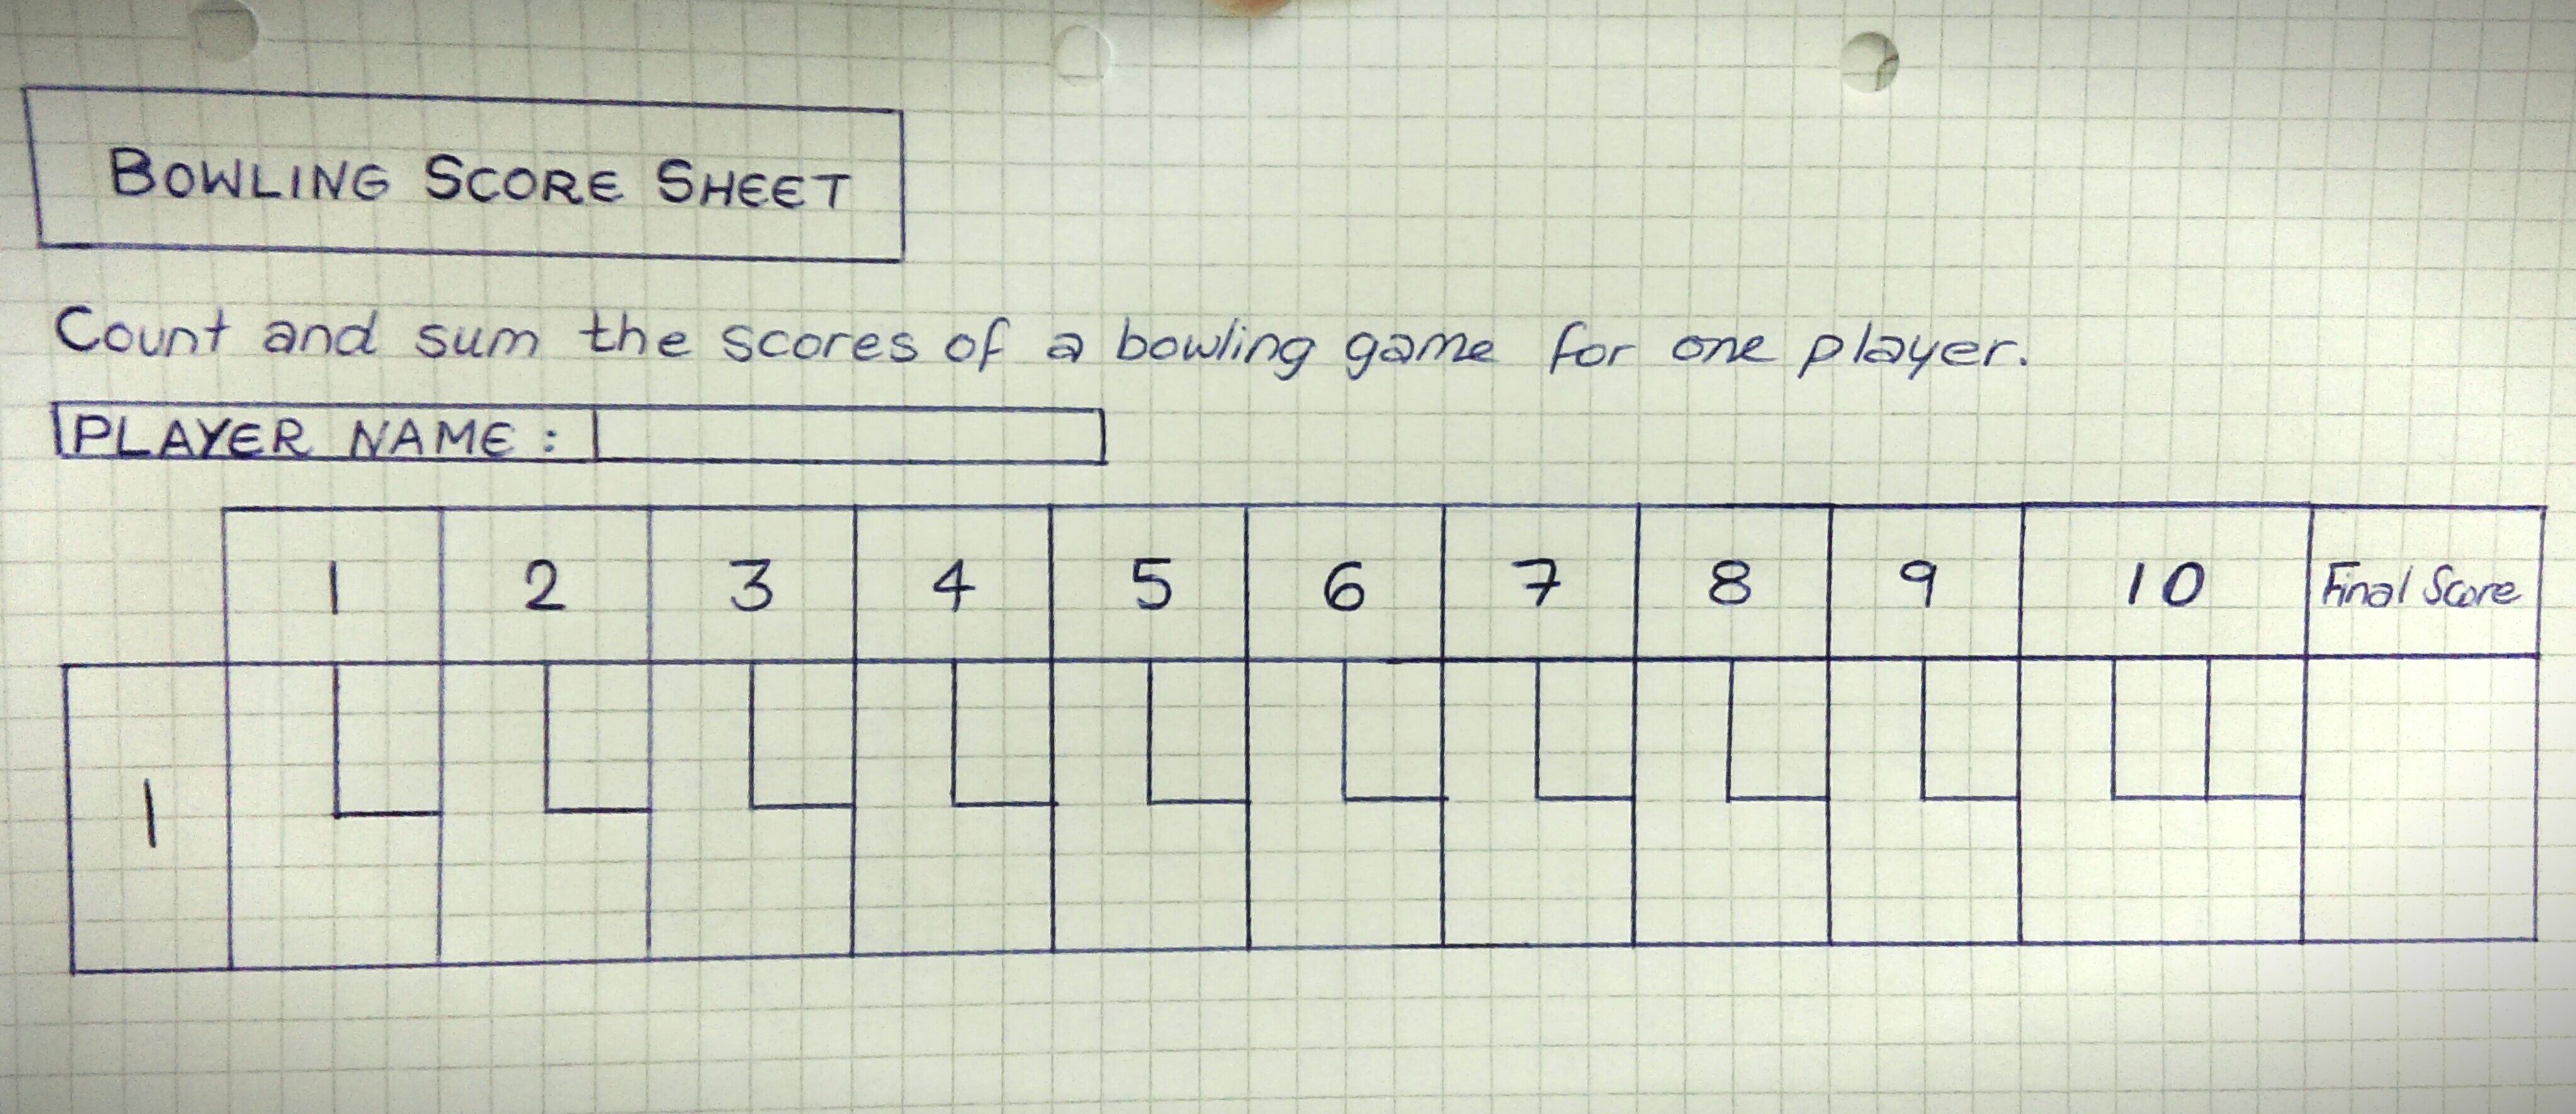 BOWLING SCORE SHEET
Count and sum the scores of a bowling game for one player.
PLAYER NAME :
1 2 3 4 5 6 7 8 9 10 Final Score
1